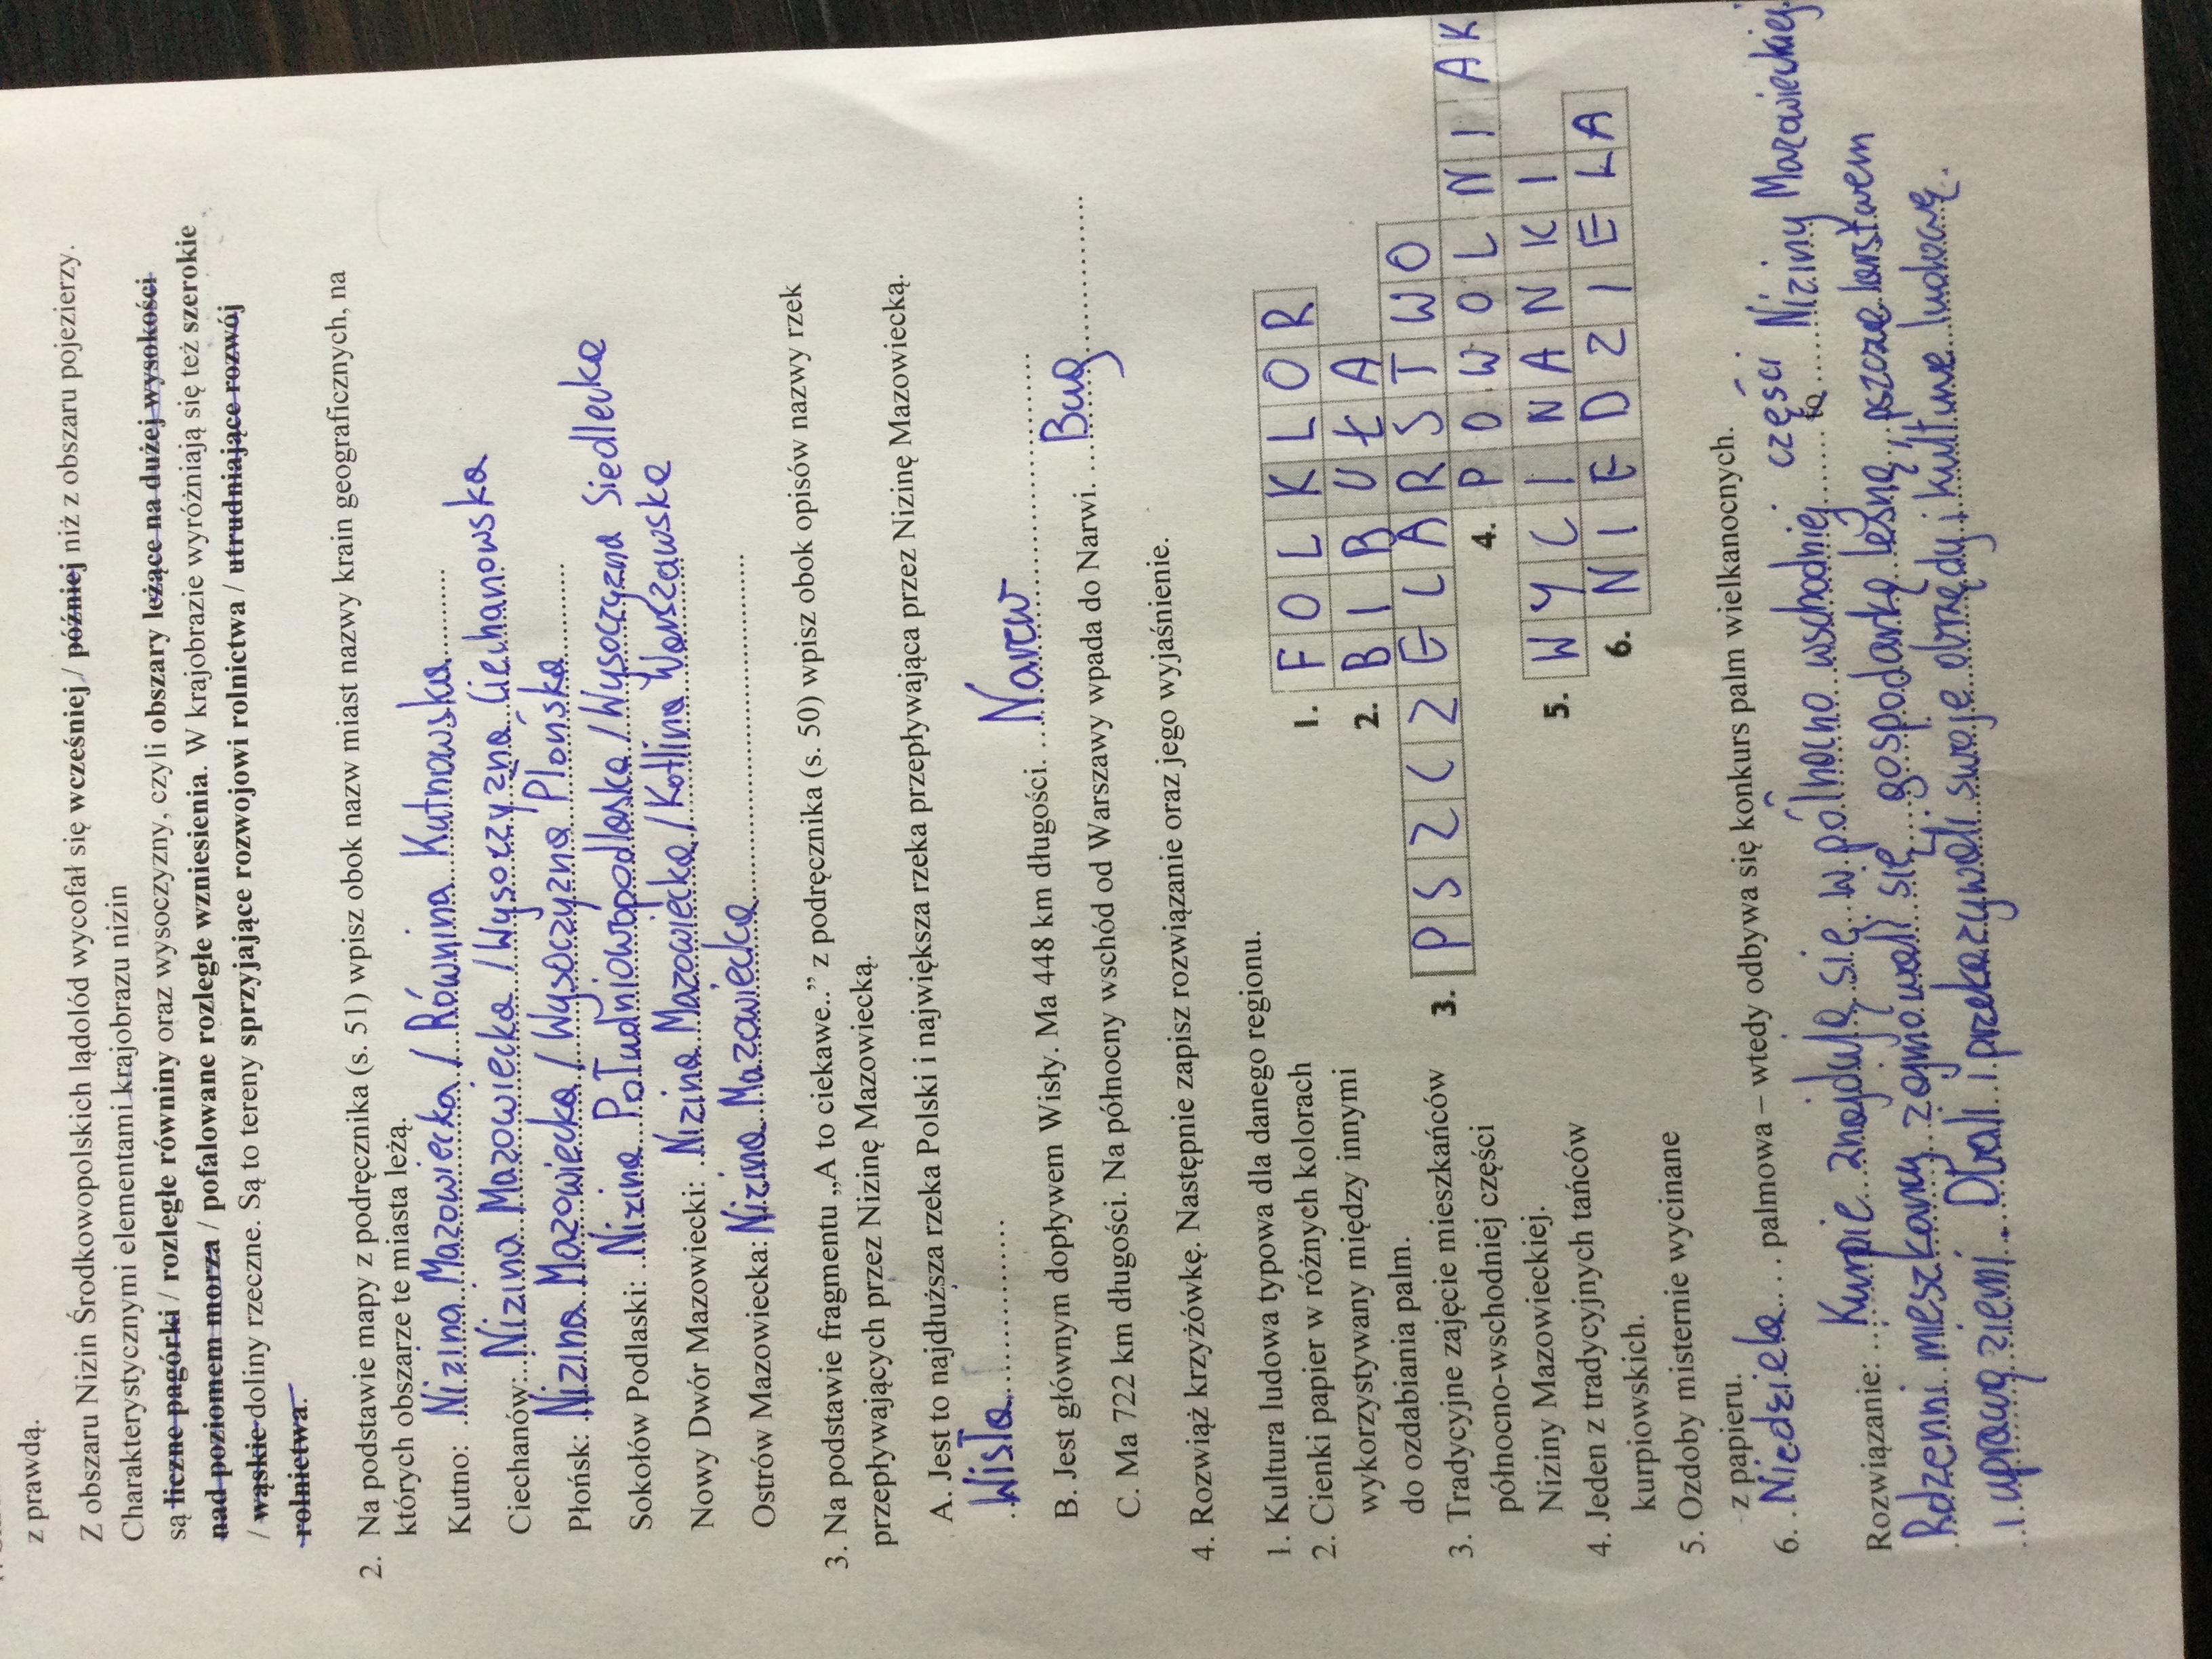 z prawdą.
Z obszaru Nizin Środkowopolskich lądolód wycofał się wcześniej / później niż z obszaru pojezierzy.
Charakterystycznymi elementami krajobrazu nizin
są liczne pagórki / rozległe równiny oraz wysoczyzny, czyli obszary leżące na dużej wysokości
nad poziomem morza / pofalowane rozległe wzniesienia. W krajobrazie wyróżniają się też szerokie
/ wąskie doliny rzeczne. Są to tereny sprzyjające rozwojowi rolnictwa / utrudniające rozwój
rolnictwa.
2. Na podstawie mapy z podręcznika (s. 51) wpisz obok nazw miast nazwy krain geograficznych, na
których obszarze te miasta leżą.
Kutno: Nizina Mazowiecka / Równina Kutnowska
Ciechanów: Nizina Mazowiecka / Wysoczyzna Ciechanowska
Płońsk: Nizina Mazowiecka / Wysoczyzna Płońska
Sokołów Podlaski: Nizina Południowopodlaska / Wysoczyzna Siedlecka
Nowy Dwór Mazowiecki: Nizina Mazowiecka / Kotlina Warszawska
Ostrów Mazowiecka: Nizina Mazowiecka
3. Na podstawie fragmentu „A to ciekawe..” z podręcznika (s. 50) wpisz obok opisów nazwy rzek
przepływających przez Nizinę Mazowiecką.
A. Jest to najdłuższa rzeka Polski i największa rzeka przepływająca przez Nizinę Mazowiecką.
Wisła
B. Jest głównym dopływem Wisły. Ma 448 km długości. Narew
C. Ma 722 km długości. Na północny wschód od Warszawy wpada do Narwi. Bug
4. Rozwiąż krzyżówkę. Następnie zapisz rozwiązanie oraz jego wyjaśnienie.
1. Kultura ludowa typowa dla danego regionu.
2. Cienki papier w różnych kolorach
wykorzystywany między innymi
do ozdabiania palm.
3. Tradycyjne zajęcie mieszkańców
północno-wschodniej części
Niziny Mazowieckiej.
4. Jeden z tradycyjnych tańców
kurpiowskich.
5. Ozdoby misternie wycinane
z papieru.
6. Niedziela palmowa – wtedy odbywa się konkurs palm wielkanocnych.
1. FOLKLOR
2. BIBUŁA
3. PSZCZELARSTWO
4. POWOLNIAK
5. WYCINANKI
6. NIEDZIELA
Rozwiązanie: Kurpie znajdują się w północno wschodniej części Niziny Mazowieckiej.
Rdzenni mieszkańcy zajmowali się gospodarką leśną, pszczelarstwem
i uprawą ziemi. Dbali i przekazywali swoje obrzędy i kulturę ludową.